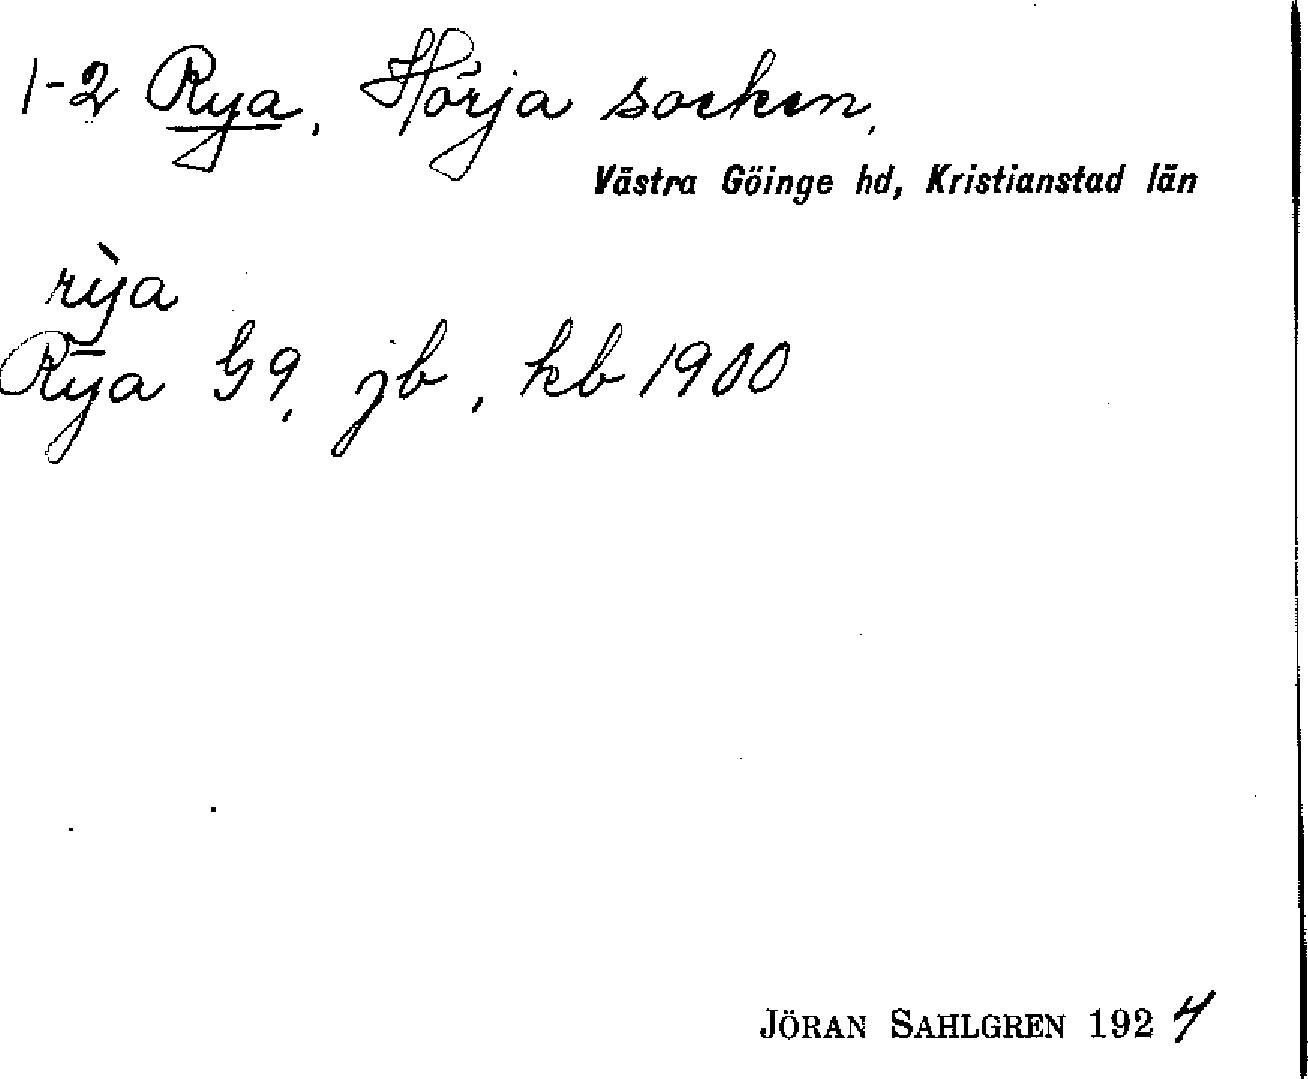 1-2 Rya, Hörja socken,
Västra Göinge hd, Kristianstad län
rỳa
Rya G9, jb, kb 1900
JÖRAN SAHLGREN 1924